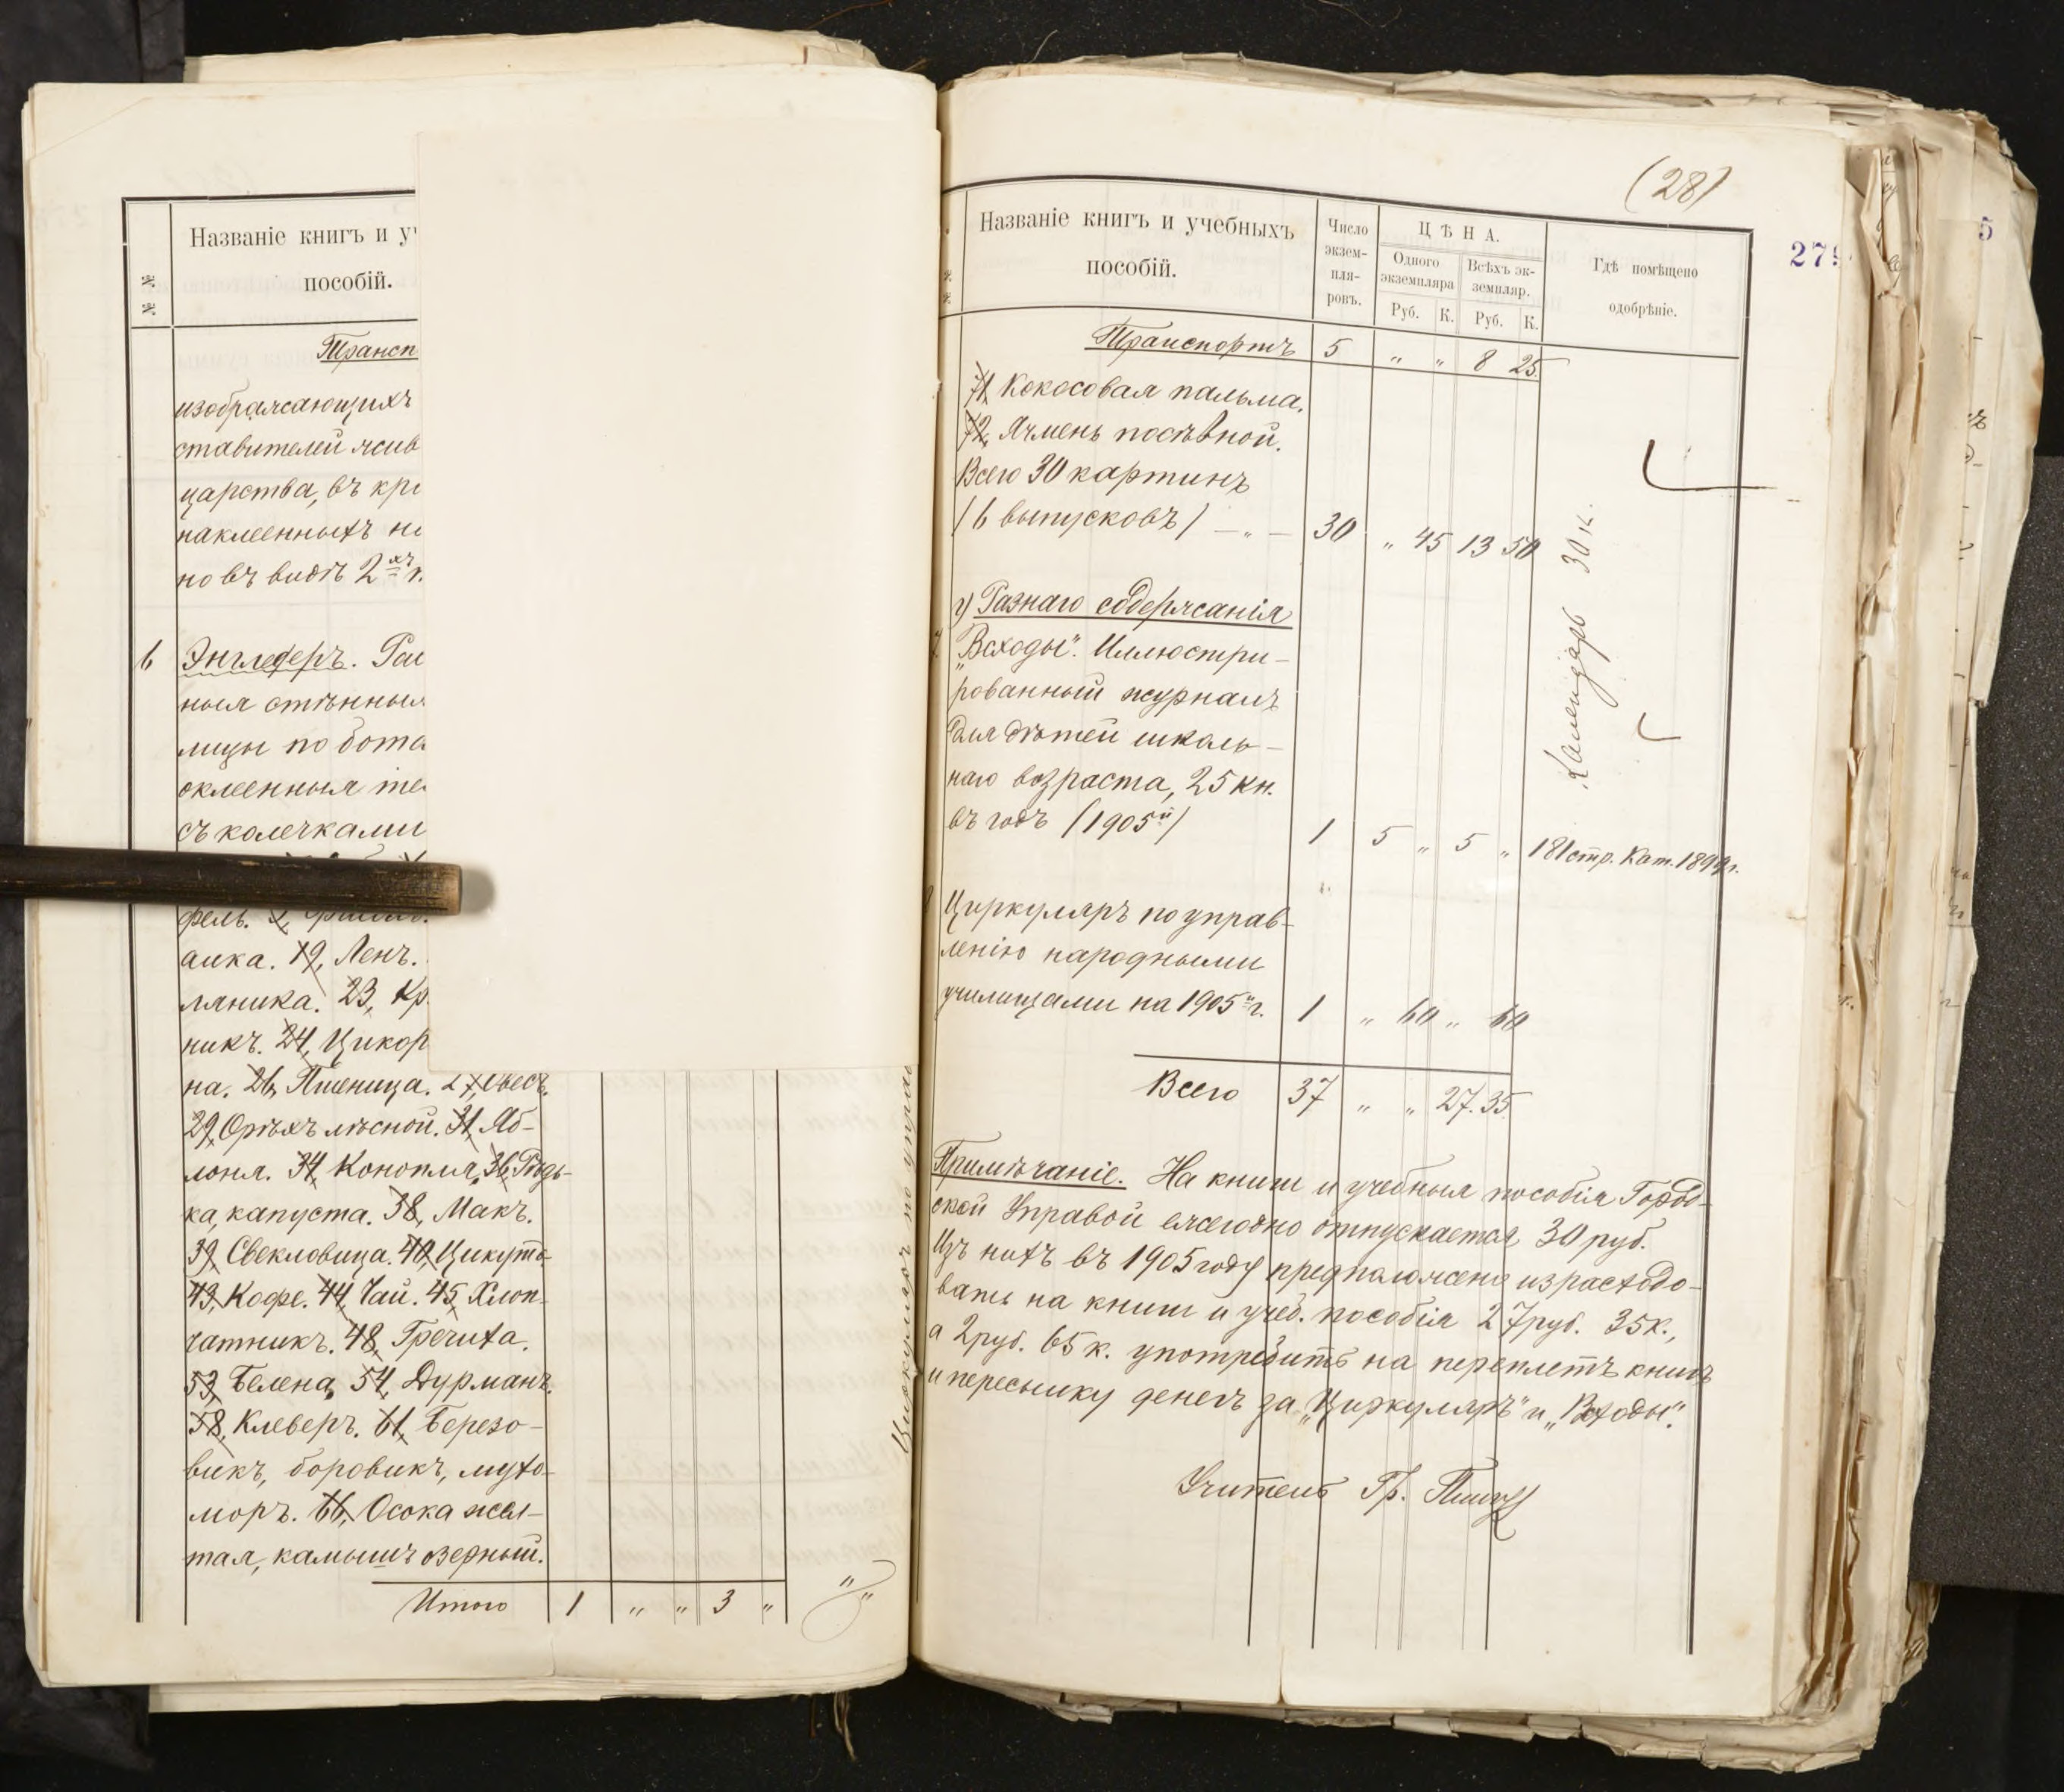 № №
Названіе книгъ и у
пособій.
Трансп
изображающихъ
ставителей жив
царства, въ кр
наклеенныхъ н
но въ видѣ 2хъ
6 Энгледеръ.
ныя стѣнныя
лицы по бота
оклеенныя те
съ колечками
фель.
алка. 19, Ленъ.
ляника. 23, Кр
никъ. 24, Цикор
на. 26, Пшеница. 27, Овесъ.
29, Орѣхъ лѣсной. 31, Яб-
лоня. 34, Конопля, 36, Рѣдь-
ка, капуста. 38, Макъ.
39, Свекловица. 40, Цикута
43, Кофе. 44, Чай. 45, Хлоп-
чатникъ. 48, Гречиха.
53, Белена, 54, Дурманъ.
58, Клеверъ. 61, Березо-
викъ, боровикъ, мухо-
моръ. 66, Осока жел-
тая, камышъ озерный.
Итого 1 " " 3 "
Циркуляръ по управ
(28)
279
5
Названіе книгъ и учебныхъ
пособій.
Число
экзем-
пля-
ровъ.
ЦѢНА.
Одного
экземпляра
Всѣхъ эк-
земпляр.
Руб. К. Руб. К.
Гдѣ помѣщено
одобрѣніе.
Транспортъ 5 " " 8 25.
71, Кокосовая пальма.
72, Ячмень посѣвной.
Всего 30 картинъ
(6 выпусковъ) — " — 30 " 45 13 50
Календарь 30 к.
г) Разнаго содержанія
7 „Всходы". Иллюстри-
рованный журналъ
для дѣтей школь-
наго возраста, 25 кн.
въ годъ (1905й) 1 5 " 5 " 181 стр. Кат. 1899 г.
8 Циркуляръ по управ-
ленію народными
училищами на 1905й г. 1 " 60 " 60
Всего 37 " " 27.35.
Примѣчаніе. На книги и учебныя пособія Город-
ской Управой ежегодно отпускается 30 руб.
Изъ нихъ въ 1905 году предположено израсходо-
вать на книги и учеб. пособія 27 руб. 35 к.,
а 2 руб. 65 к. употребить на переплетъ книгъ
и пересылку денегъ за „Циркуляръ" и „Всходы".
Учитель Гр.